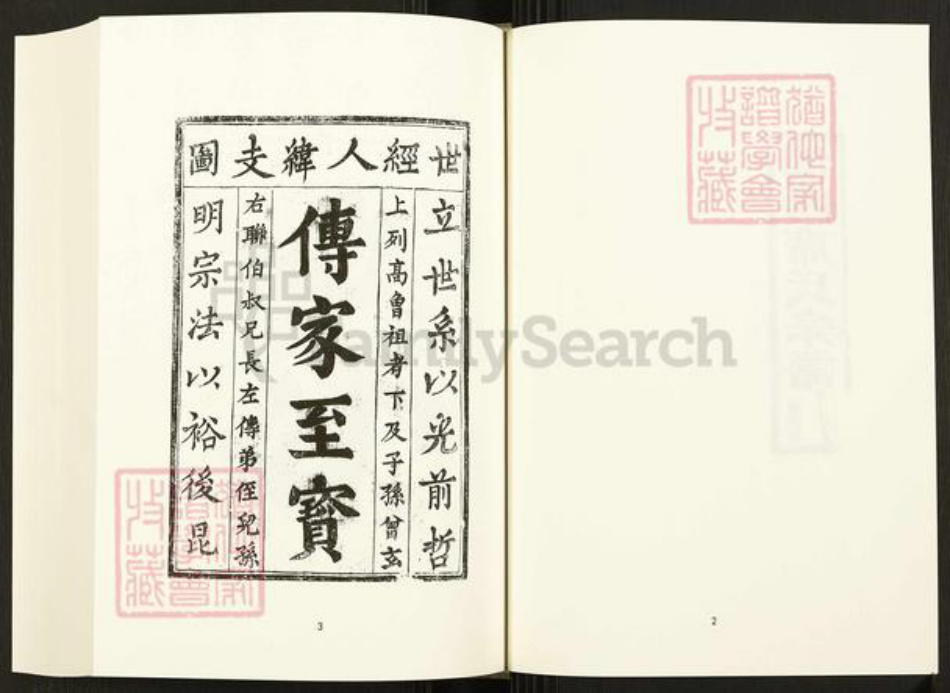 猶他家
譜學會
收藏
2
世經人緯支圖
立世系以光前哲
上列高曾祖考下及子孫曾玄
傳家至寶
右聯伯叔兄長左傳弟侄兒孫
明宗法以裕後昆
猶他家
譜學會
收藏
3
FamilySearch